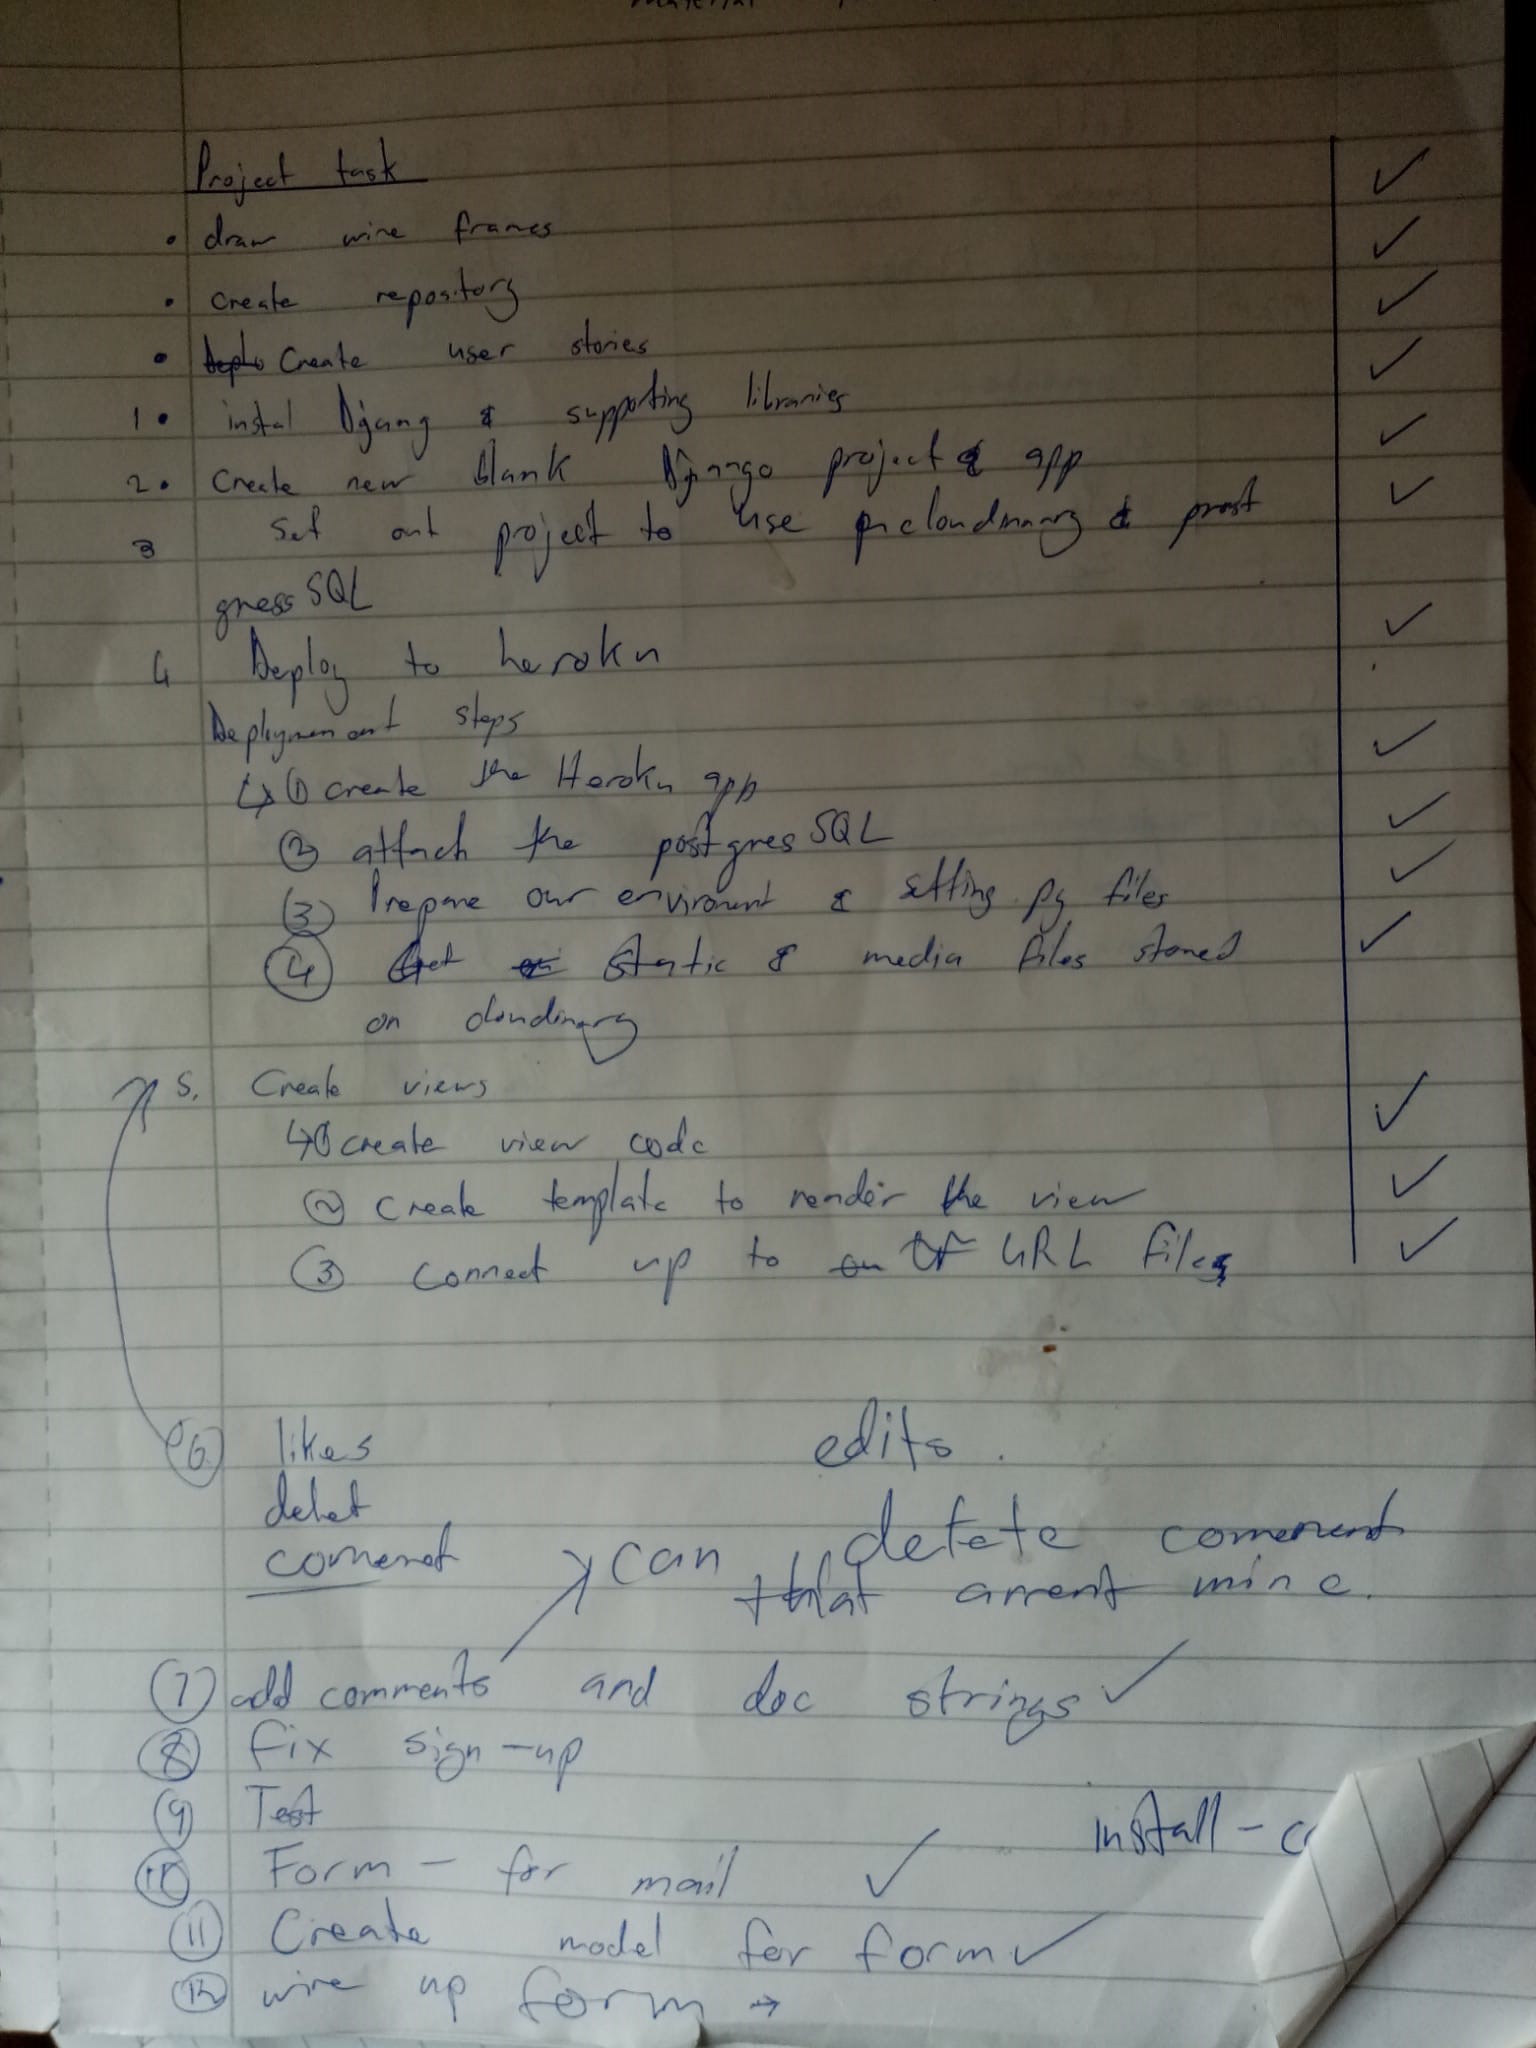 material
Project task
• draw wire frames
• Create repository
• Deplo Create user stories
1• instal Django & supporting libraries
2• Create new blank Django project & app
3 Set out project to use cloudinary & prost
gress SQL
4 Deploy to heroku
Deploymenant steps
↳ ① create the Heroku app
② attach the postgres SQL
③ Prepare our enviroment & setting.py files
④ Get Static & media files stored
on cloudinary
5. Create views
↳ ① create view code
② create template to render the view
③ connect up to URL files
⑥ likes edits.
delet
comenet can detete comenent
that arrent mine.
⑦ add comments and doc strings ✓
⑧ fix sign-up
⑨ Test
install - c
⑩ Form - for mail ✓
⑪ Create model for form ✓
⑫ wire up form →